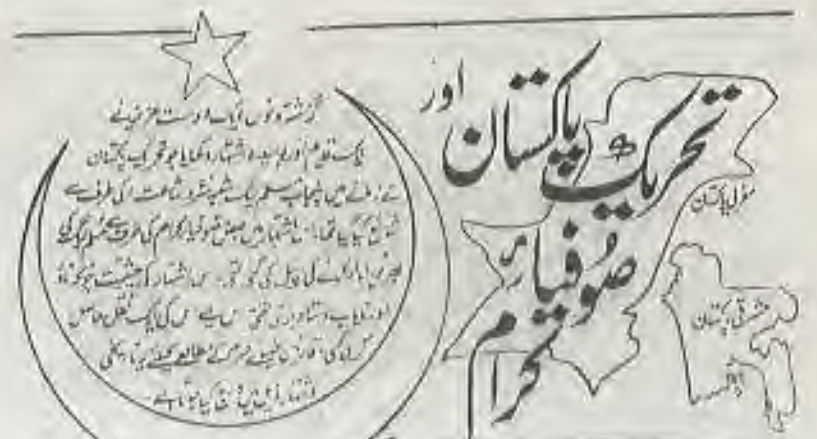 تحریک پاکستان اور
صوفیاء کرام
مغربی پاکستان
مشرقی پاکستان
گزشتہ دنوں ایک دوست عزیز نے
ایک قدیم اور بوسیدہ اشتہار دکھایا جو تحریک پاکستان
کے زمانے میں پنجاب مسلم لیگ شعبہ نشر و اشاعت کی طرف سے
شائع کیا گیا تھا۔ اس اشتہار میں بعض صوفیاء کرام کی طرف سے مسلم لیگ کی
کی اپیل کی گئی تھی۔ اس اشتہار کی حیثیت چونکہ
اور نایاب دستاویز کی تھی اس لیے اس کی ایک نقل حاصل
کر لی گئی۔ قارئین کے مطالعہ کیلئے یہ تاریخی
اشتہار ذیل میں شائع کیا جاتا ہے۔